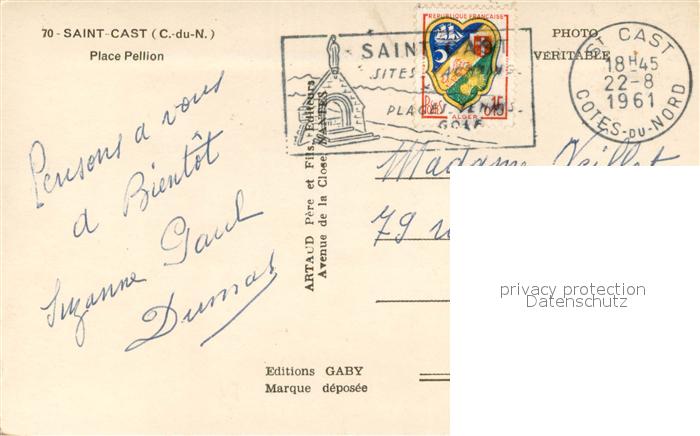 70 - SAINT-CAST (C.-du-N.)
Place Pellion
PHOTO
VÉRITABLE
REPUBLIQUE FRANÇAISE
ALGER
SAINT CAST
SITES YACHTING
PLAGES TENNIS
GOLF
ST CAST
18H45
22-8
1961
COTES-DU-NORD
Pensons a vous
a Bientôt
Suzanne Paul
Dumas
ARTAUD Père et Fils, Editeurs
Avenue de la Close, NANTES
Madame
79
Editions GABY
Marque déposée
privacy protection
Datenschutz